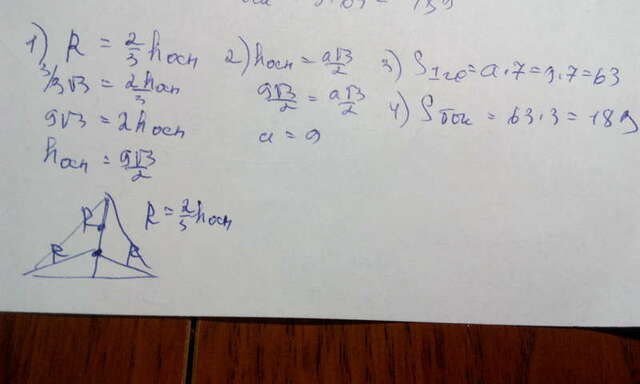 = 189
1) R = 2/3 hосн
³/3√3 = 2hосн/3
9√3 = 2hосн
hосн = 9√3/2
2) hосн = a√3/2
9√3/2 = a√3/2
a = 9
3) S1го = a · 7 = 9 · 7 = 63
4) Sбок = 63 · 3 = 189
R
R
R
R = 2/3 hосн